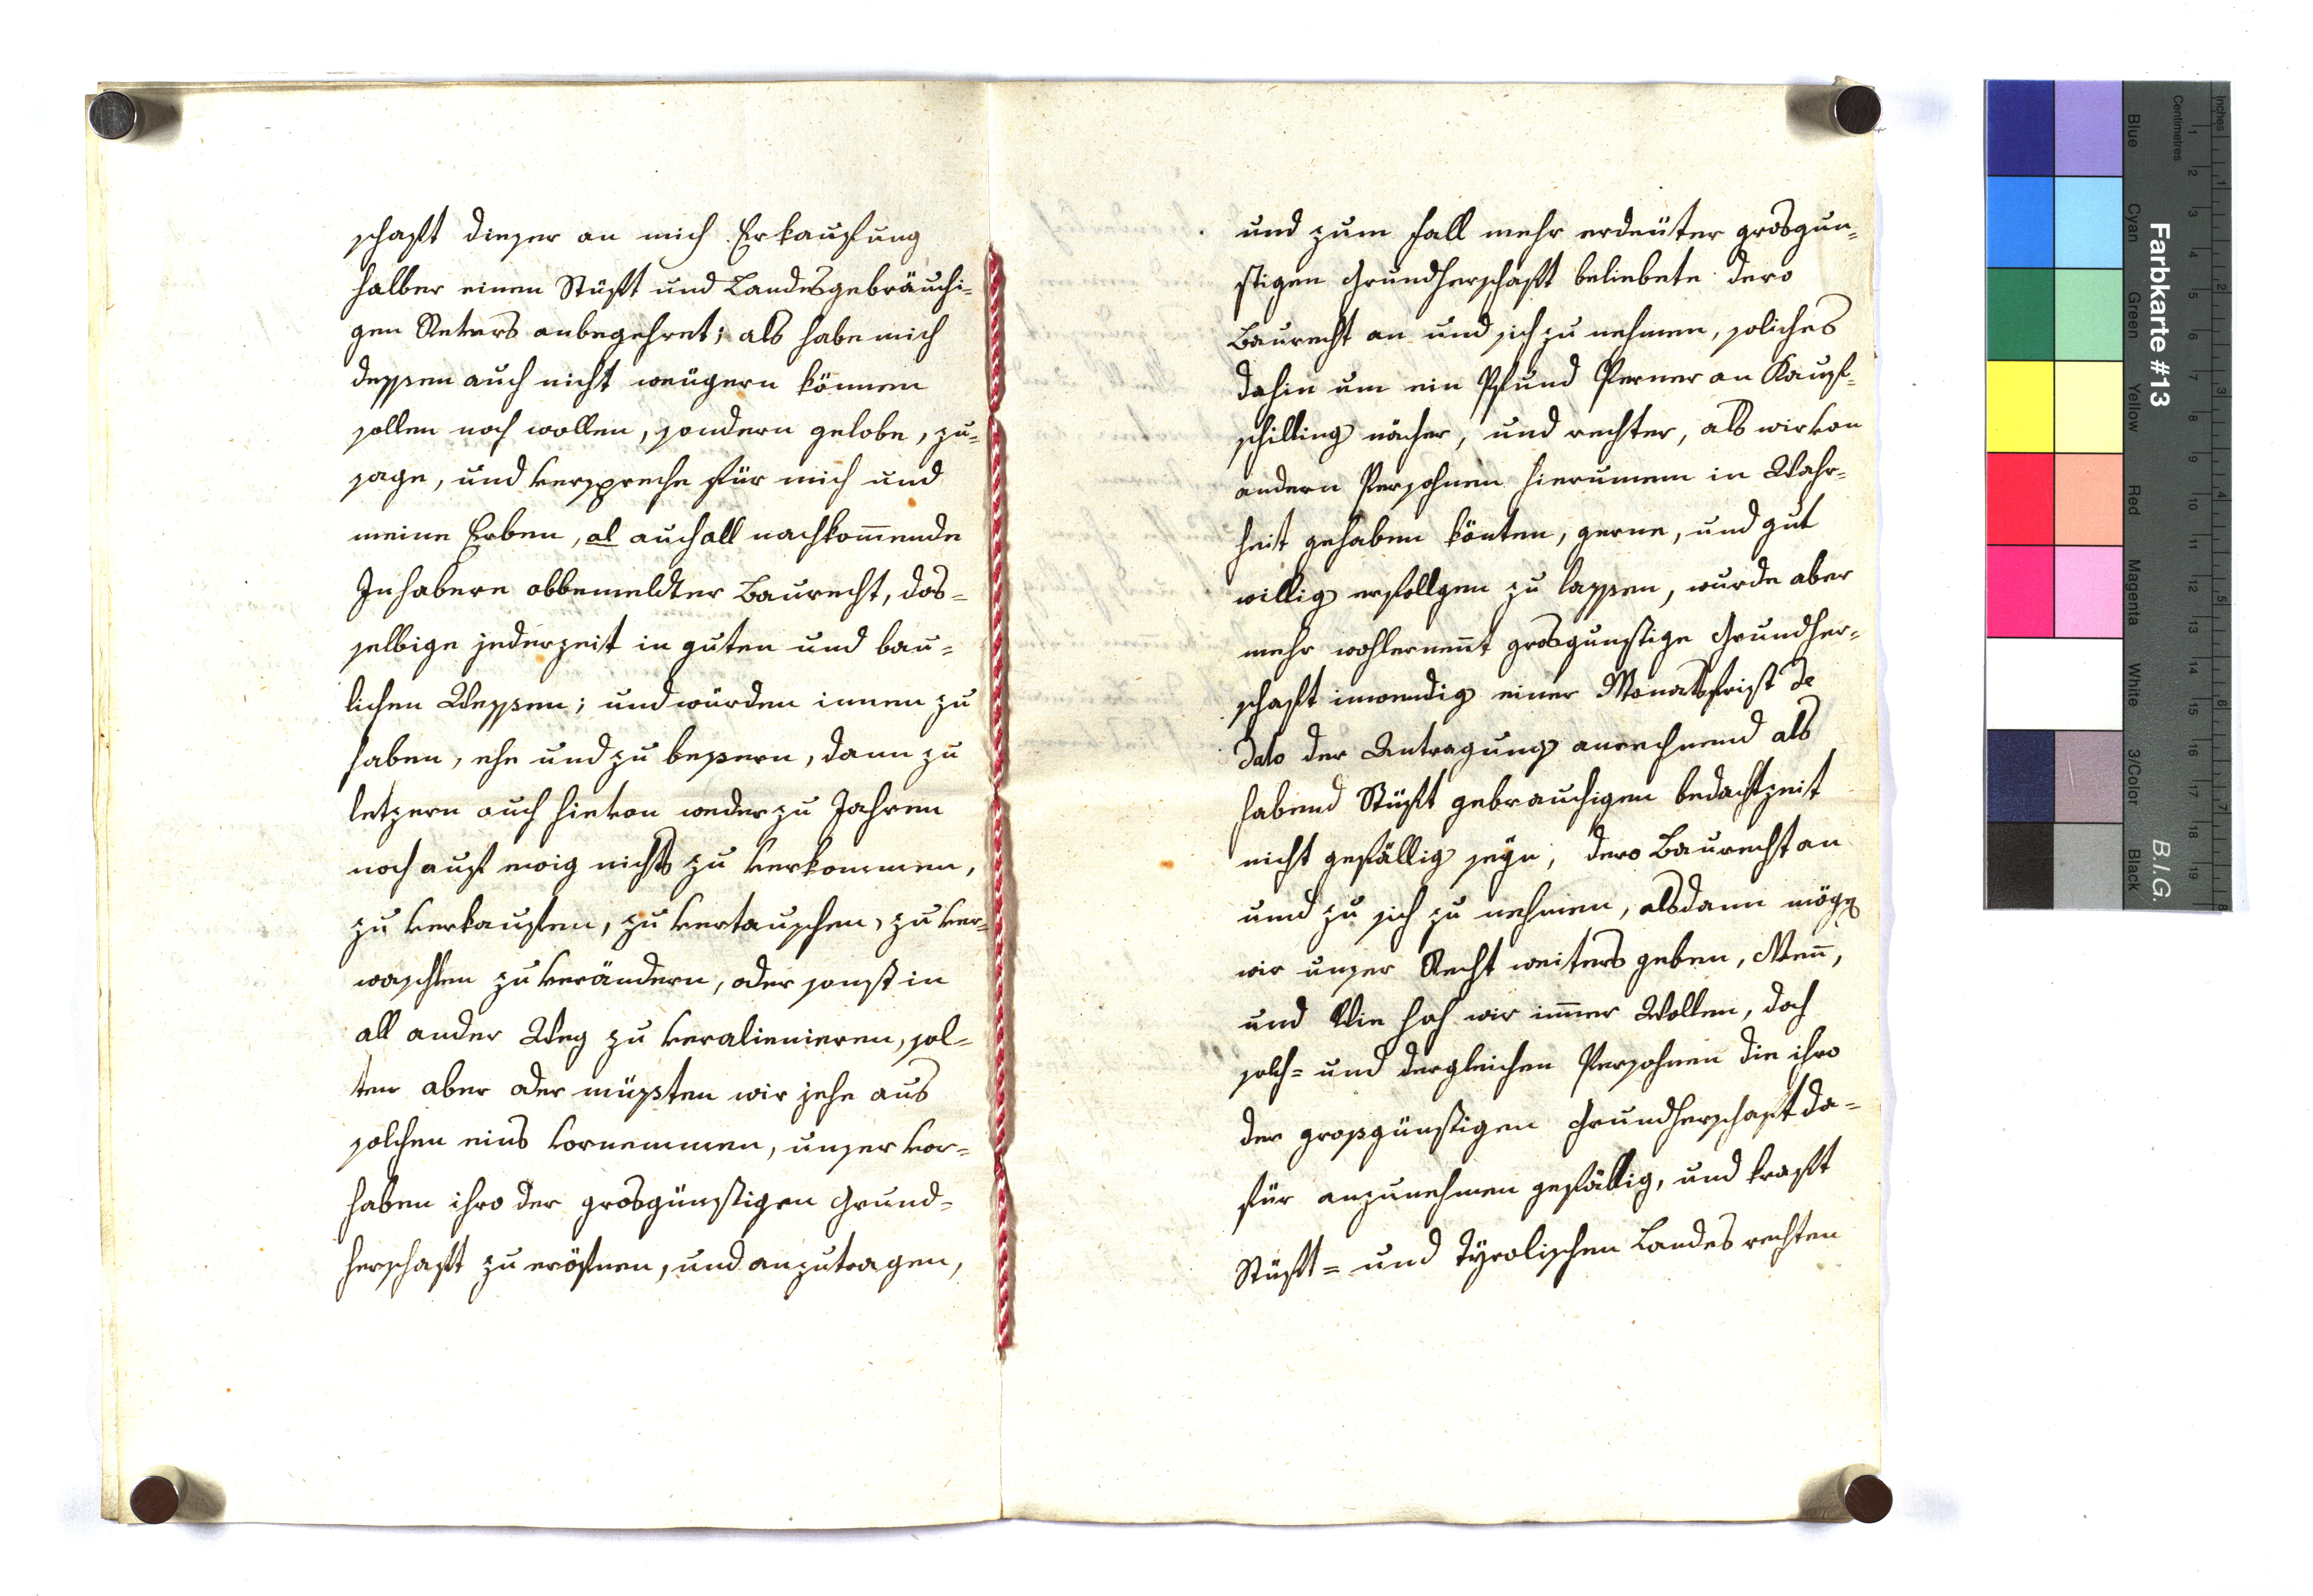 schafft dieser an mich Erkauffung
halber einen Stüfft und Landesgebräuchi-
gen Revers anbegehret; als habe mich
dessen auch nicht weügern können
sollen noch wollen, sondern gelobe, zu-
sage, und verspreche für mich und
meine Erben, al auch all nachkom̄ende
Inhabere obbemeldter Baurecht, das-
selbige jederzeit in guten und bau-
lichen Wessen; und würden innen zu
haben, ehe und zu bessern, dann zu
letzern auch hievon weder zu Jahren
noch auf ewig nichts zu verkommen,
zu verkauffen, zu vertauschen, zu ver-
waschlen zu verändern, oder sonst in
all ander Weg zu veralienieren, sol-
ten aber oder müssten wir jehe aus
solchen eins vornemmen, unser vor-
haben ihro der grosgünstigen Grund-
herschafft zu eröffnen, und anzutragen,
und zum fall mehr erdeüter grosgun-
stigen Grundherschafft beliebete dero
Baurecht an und sich zu nehmen, soliches
dahin um ein Pfund Perner an Kauff-
schilling nächer, und rechter, als wir von
andern Persohnen hierumem in Wahr-
heit gehaben könten, gerne, und gut
willig erfollgen zu lassen, wurde aber
mehr wohlernen̄t grosgunstige Grundher-
schafft inwendig einer Monatsfrist de
dato der Antragung anrechnend als
habend Stüfft gebrauchigen bedachtzeit
nicht gefällig seÿn, dero Baurecht an
und zu sich zu nehmen, alsdann möge
wir unser Recht weiters geben, Wem̄,
und Wie hoch wir im̄er Wollen, doch
solch= und dergleichen Persohnen die ihro
der grossgünstigen Grundherschafft da-
für anzunehmen gefällig, und krafft
Stüfft= und Tÿrolischen Landes rechten
Farbkarte #13
B.I.G.
Inches
Centimetres
1 2 3 4 5 6 7 8
1 2 3 4 5 6 7 8 9 10 11 12 13 14 15 16 17 18 19
Blue
Cyan
Green
Yellow
Red
Magenta
White
3/Color
Black